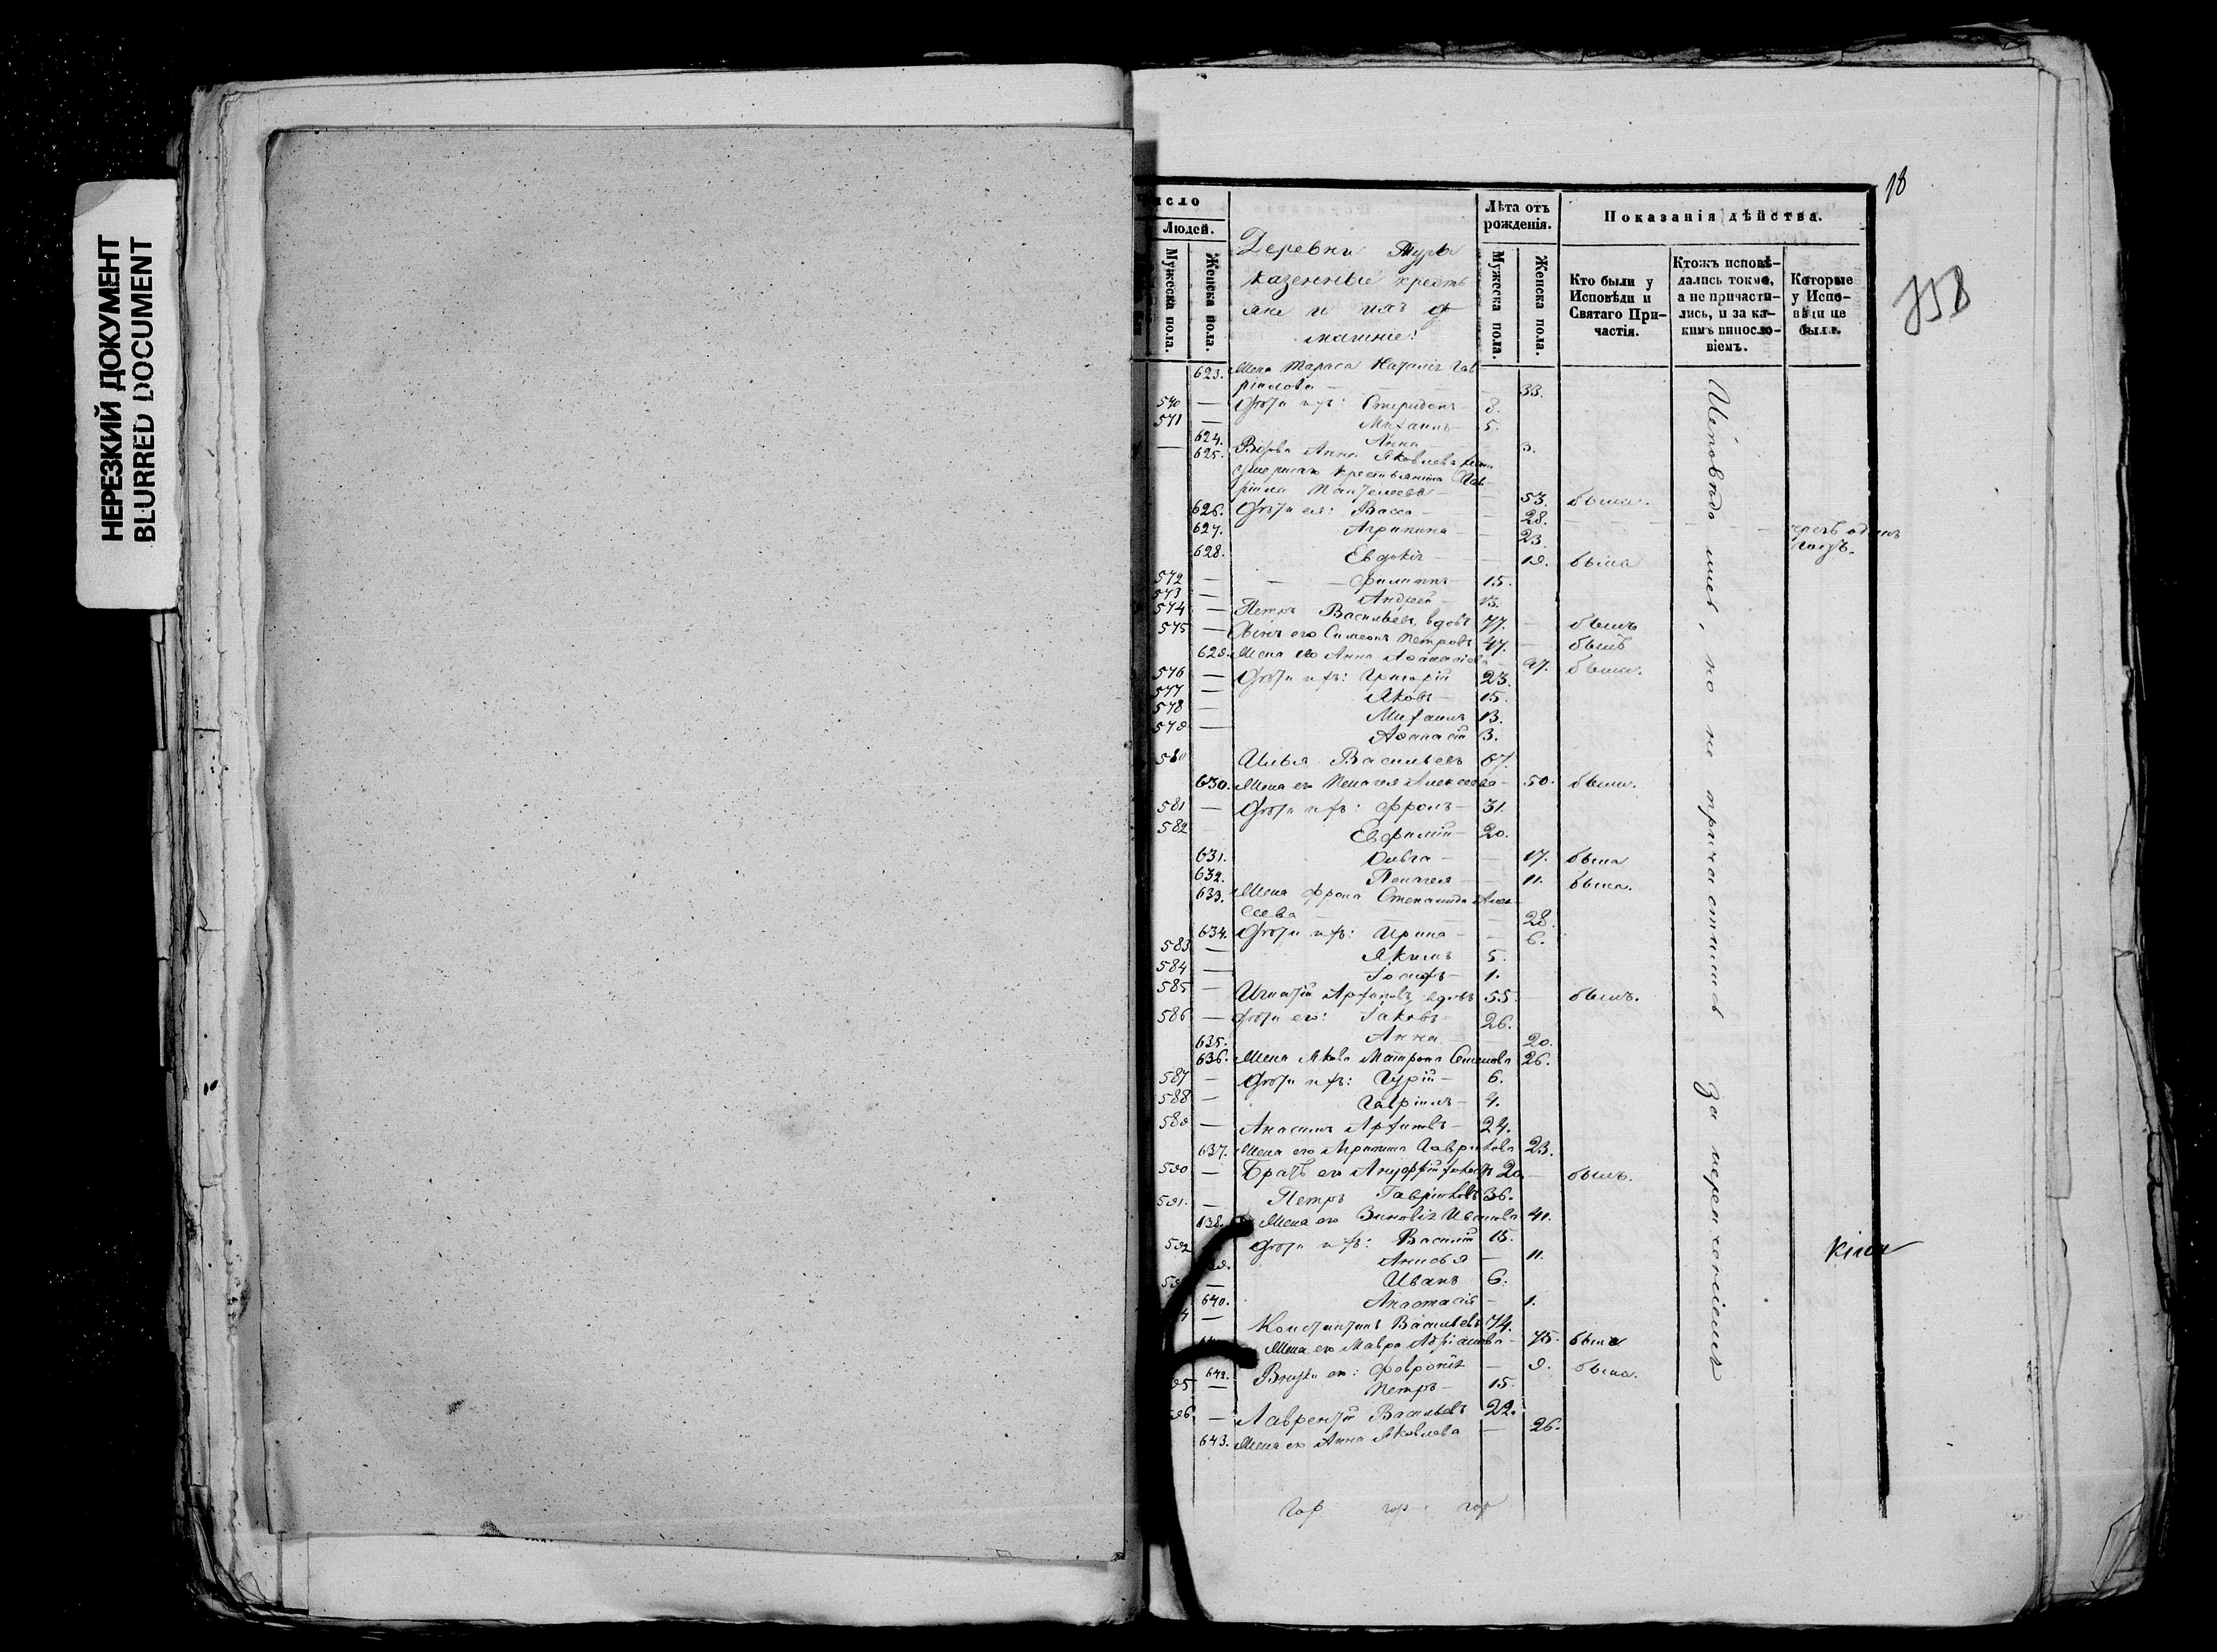 НЕРЕЗКИЙ ДОКУМЕНТ
BLURRED DOCUMENT
18
358
число
Людей.
Мужеска пола.
Женска пола.
Деревни Туры
казенные кресть
яне и ихъ до
машніе:
Лѣта отъ рожденія.
Мужеска пола.
Женска пола.
Показанія дѣйства.
Кто были у Исповѣди и Святаго Причастія.
Ктожъ исповѣдались токмо, а не причастились, и за какимъ винословіемъ.
Которые у Исповѣди не были.
623. Жена Тараса Наталія Гав
ріилова — 33.
540 — Дѣти ихъ: Спиридонъ — 8.
571 — Михаилъ — 5.
624. Анна — 3.
— 625. Вдова Анна Яковлева жена
умершаго крестьянина Гав
ріила Пантелеева — 53. была.
626. Дѣти ея: Васса — 28.
627. Агрипина — 23. чрезъ одинъ годъ.
628. Евдокія — 19. была
572 — Филиппъ — 15.
573 — Андрей — 13.
574 — Петръ Васильевъ, вдовъ 77. — былъ
575 — Сынъ его Симеонъ Петровъ 47. — былъ
629. Жена его Анна Афанасіева — 47. была.
576 — Дѣти ихъ: Григорій 23.
577 — Яковъ — 15.
578 — Михаилъ 13.
579 — Афанасій 3.
580 Илья Васильевъ 67.
630. Жена его Пелагея Алексеева — 50. была.
581 — Дѣти ихъ: Фролъ — 31.
582 Евфимій — 20.
631. Ольга — 17. была
632. Пелагея — 11. была.
633. Жена Фрола Степанида Алек
сеева — 28.
634. Дѣти ихъ: Ирина — 6.
583 — Якимъ 5.
584 — Іосифъ — 1.
585 — Игнатій Архиповъ, вдовъ 55. — былъ.
586 — Дѣти его: Іаковъ — 26.
635. Анна 20.
636. Жена Якова Матрона 26.
587 — Дѣти ихъ: Гурій — 6.
588 — Гавріилъ — 4.
589 — Архиповъ — 24.
637. Жена его Агрипина Гаврилова 23.
590 — Братъ его 20. — былъ.
591. — Петръ Гавриловъ 36.
638. Жена его Зиновія Иванова 41.
592 Дѣти ихъ: Василій 15.
Анисья — 11.
— Иванъ 6.
640. Анастасія — 1.
— Константинъ Васильевъ 74.
Жена его Мавра — 75. была
642. Внуки ея: Февронія — 9. была.
95 — Петръ — 15.
596. — Лаврентій Васильевъ 22.
643. Жена его Анна Яковлева — 26.
Исповѣдались, но не причастились за нераченіемъ